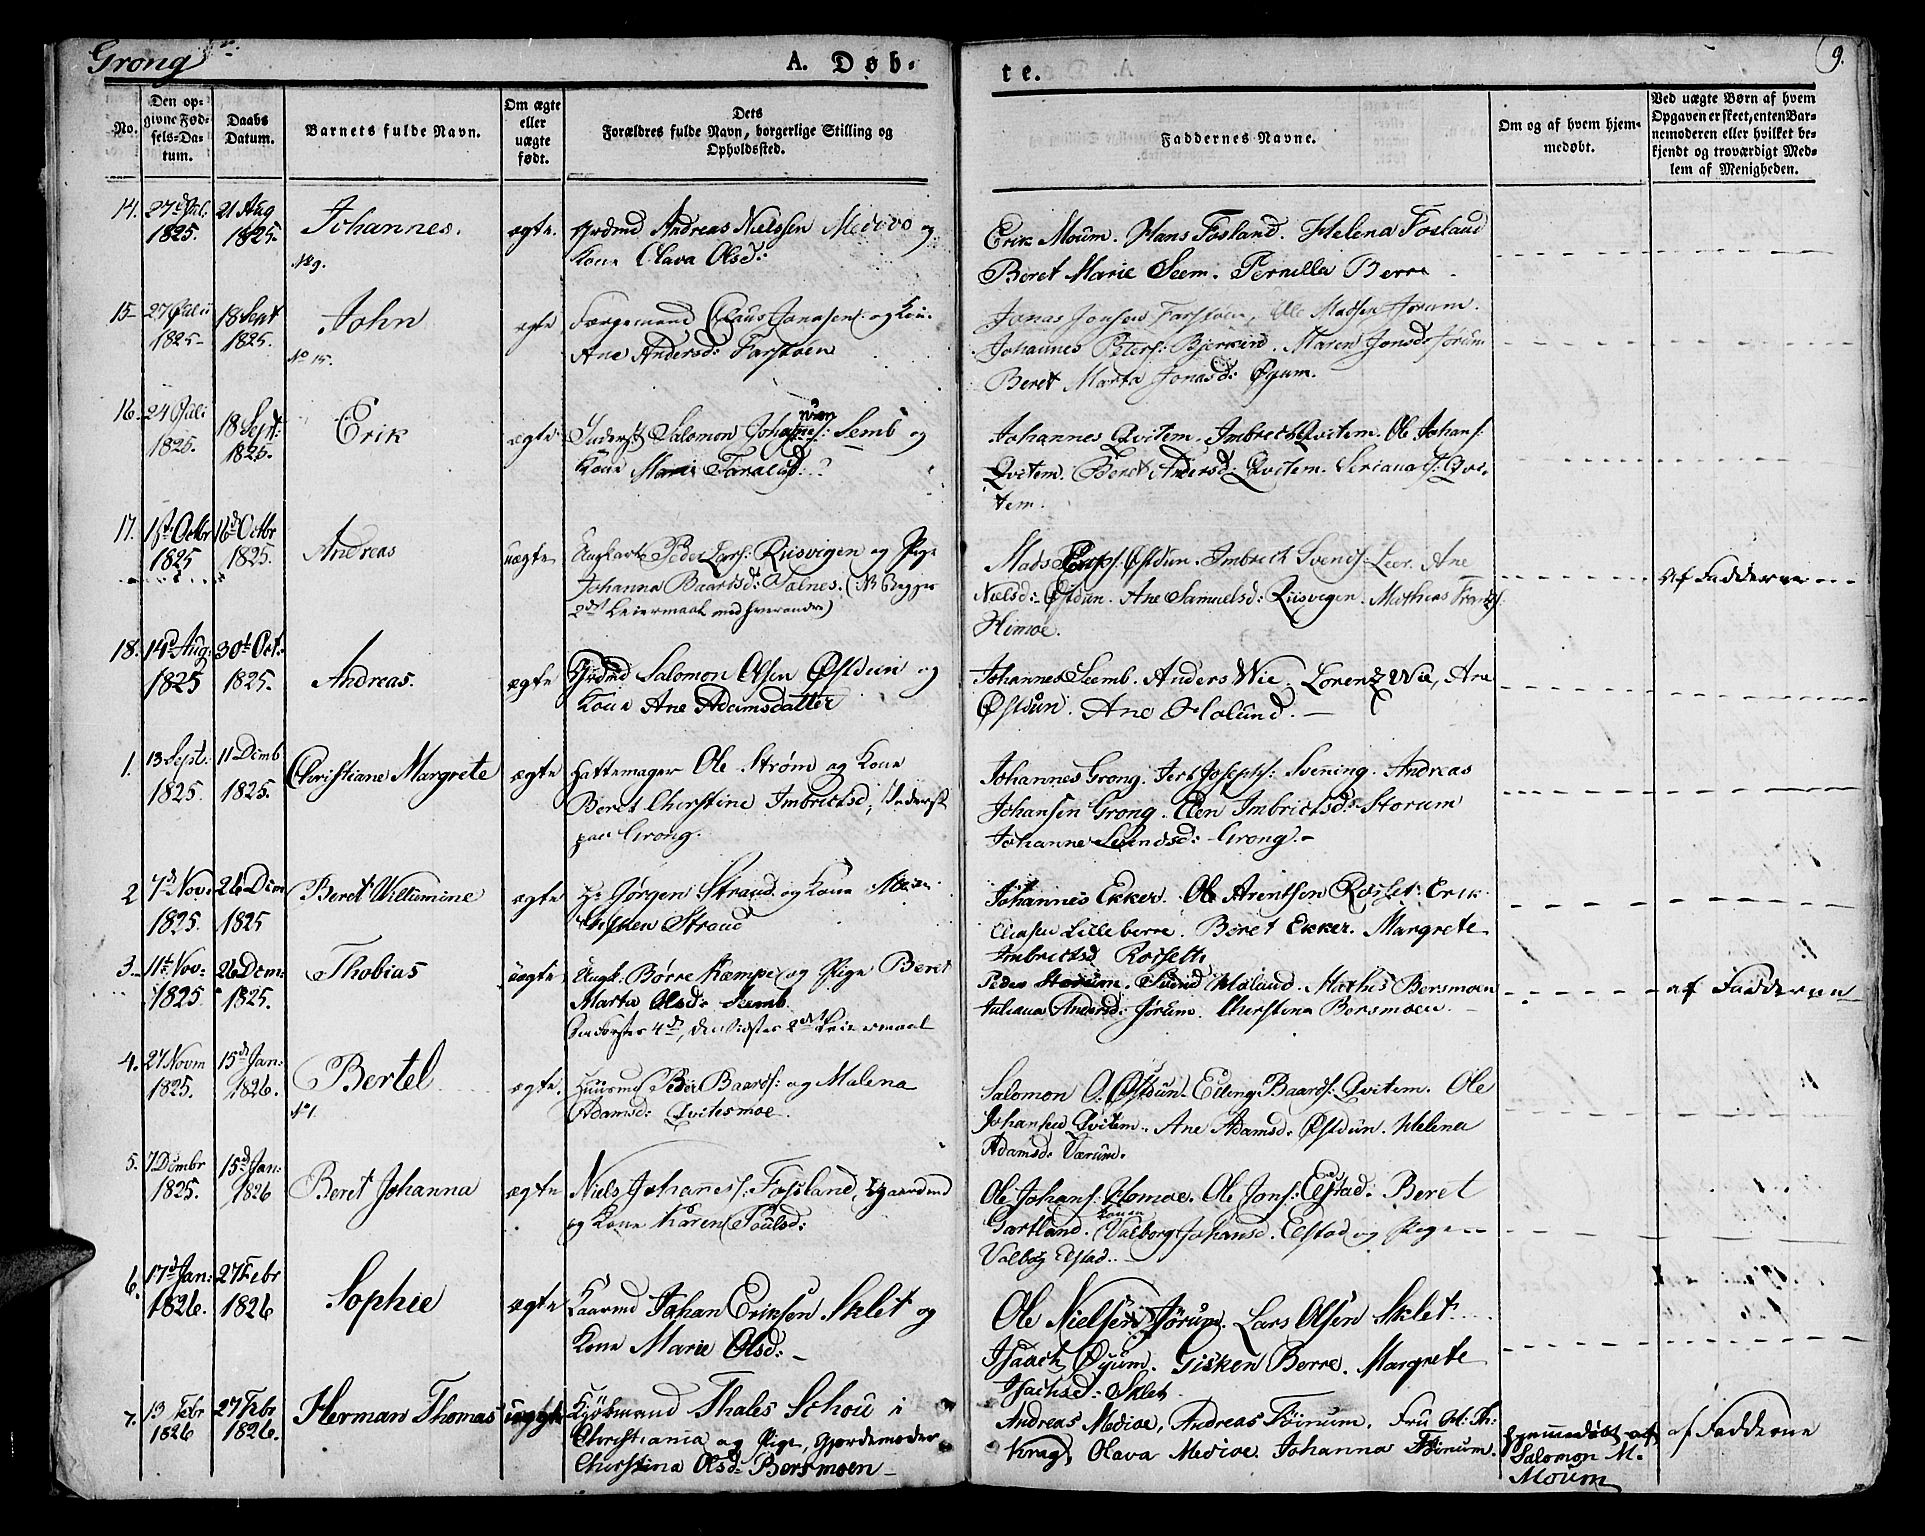 Grong
A. Døb-
te.
9.
No.
Den op-
givne Fød-
sels-Da-
tum.
Daabs
Datum.
Barnets fulde Navn.
Om ægte
eller
uægte
født.
Dets
Forældres fulde Navn, borgerlige Stilling og
Opholdssted.
Faddernes Navne.
Om og af hvem hjem-
medøbt.
Ved uægte Børn af hvem
Opgaven er skeet, enten Bar-
nemoderen eller hvilket be-
kjendt og troværdigt Med-
lem af Menigheden.
14. 27de Jul. 21 Aug
1825. 1825.
Johannes.
No 9.
ægte.
Grdmd Andreas Nielssen Medivo og
Kone Olava Olsd:
Erik Moum. Hans Fosland. Helena Fosland
Beret Marie Seem. Pernilla Berre
15 27 Julii 18 Sept
1825 1825.
John
No 15.
ægte
Færgemand Claus Jonassen: og Kone
Ane Andersd: Farstøen
Jonas Jonsen Farstøen, Ole Madsen Jørum.
Johannes Peters: Bjerkin. Maren Jonsd: Jørum
Beret Marta Jonasd: Øyum.
16. 24 Juli 18 Sept:
1825. 1825.
Erik
ægte
Inderst Salomon Johannes: Semb og
Kone Marie Tanalsd: ?
Johannes Qvitem. Imbrect Qvitem. Ole Johans:
Qvitem. Beret Andersd: Qvitem. Seriana J: Qvi-
tem.
17. 1ste Octbr 16d Octbr
1825 1825.
Andreas
uægte
Ungkarl Peder Lars: Riisvigen og Pige
Johanna Baardsd: Salnes. (NB Begges
2det Leiermaal med hverandre)
Mads Østdun. Imbrect Svends: Leer. Ane
Nielsd: Østdun. Ane Samuelsd: Riisvigen. Mathias
Himoe.
Af Fadderne
18. 14d Aug: 30te Oct.
1825 1825.
Andreas.
ægte
Grdmd Salomon Olsen Østdun og
Kone Ane Adamsdatter
Johannes Seemb. Anders Wie. Lorentz Wie, Ane
Østdun. Ane Holund.
1. 13 Sept: 11 Decmb
1825. 1825.
Christiane Margrete
ægte
Hattemager Ole Strøm og Kone
Beret Cherstine Imbrictsd, Inderst
paa Grong.
Johannes Grong. Jert Josephs: Svenning. Andreas
Johansen Grong. Elen Imbrictsd: Storum
Johanne Svendsd: Grong.
2 7d Nov. 26 Decm
1825. 1825
Beret Willumine
ægte
Hr Jørgen Strand og Kone
Strand
Johannes Ekker. Ole Arentsen Rosset. Erik
Lilleberre. Beret Ekker. Margrete
Imbrictsd Rosset.
3. 11te Nov: 26 Decm:
1825 1825.
Thobias
uægte
Ungk. Børre Kæmpe og Pige Beret
Marta Olsd: Semb
Den første 4d, den sidste 2det Leiermaal
Peder Storum. Svend Moland. Mathis Borsmoen
Juliana Andersd: Jørum. Cherstina Borsmoen.
af Fadderne
4. 27 Novm 15d Jan:
1825. 1826.
Bertel
No 1.
ægte.
Huusmd Peder Baards: og Malena
Adamsd: Qvitesmoe.
Salomon O: Østdun. Edling Baards: Qvitem. Ole
Johansen Qvitem. Ane Adamsd: Østdun. Helena
Adamsd: Værum.
5. 7 Decmbr 15d Jan:
1825. 1826
Beret Johanna
ægte
Niels Johannes: Fossland, Gaardmd
og Kone Karen Poulsd:
Ole Johans: Homoe. Ole Jons: Elstad: Beret
Gartland. Konen Valborg Johansd. Elstad og Pige
Valbog Elstad.
6. 17d Jan: 27 Febr
1826. 1826
Sophie
ægte
Gaarmd Johan Eriksen Sklet og
Kone Marie Olsd:
Ole Nielsen Jørum. Lars Olsen Sklet.
Isaach Øyum. Gisken Berre. Margrete
Isachsd: Sklet
7. 13 Febr 27 Febr
1826 1826.
Herman Thomas
uægte
Kjøbmand Thales Schou i
Christiania og Pige, Gjordemoder
Cherstina Olsd: Borsmoen
Andreas Medivoe, Andreas Føinum. Fru M: Th:
Krag, Olava Medivoe. Johanna Føinum.
hjemmedøbt af
Salomon M.
Moum
af Fadderne